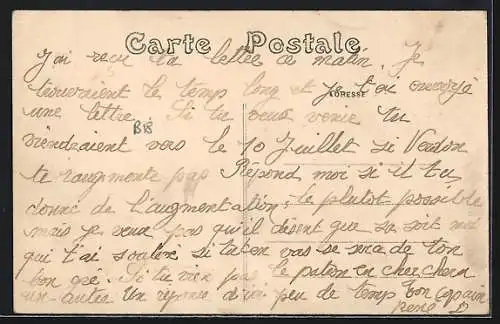 Carte Postale
J'ai recu ta lettre ce matin. Je
trouvraient le temps long et je t'ai envoyé
ADRESSE
une lettre. Si tu veus venir tu
B18
viendraient vers le 10 Juillet si Verdon
te raugmente pas Répond moi si il ta
donné de l'augmentation, le plutot possible
mais je veux pas qu'il disent que se soit moi
qui t'ai soutiré si tu ten vas se sera de ton
bon gré. Si tu vien pas le patron en cherchera
un autre Un reponse d'ici peu de temps ton copain
René D